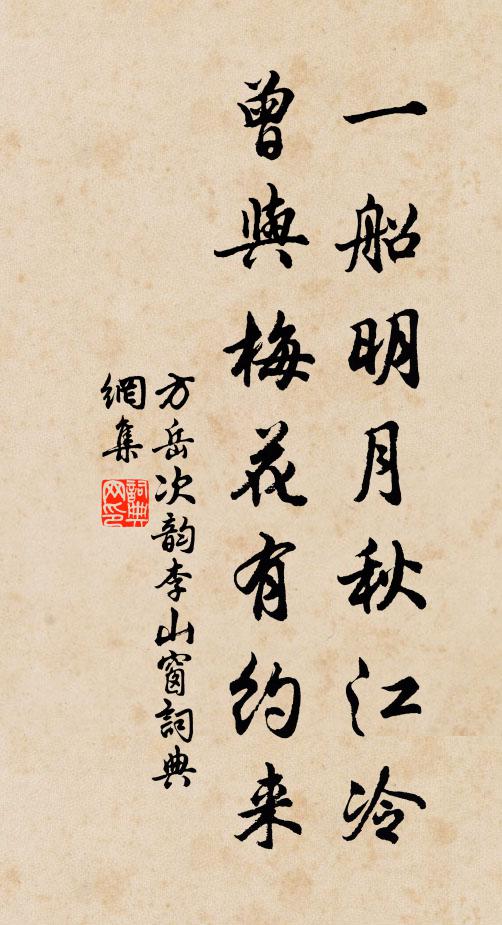 一船明月秋江冷
曾與梅花有約来
方岳次韵李山窗詞典
網集
詞典
网印